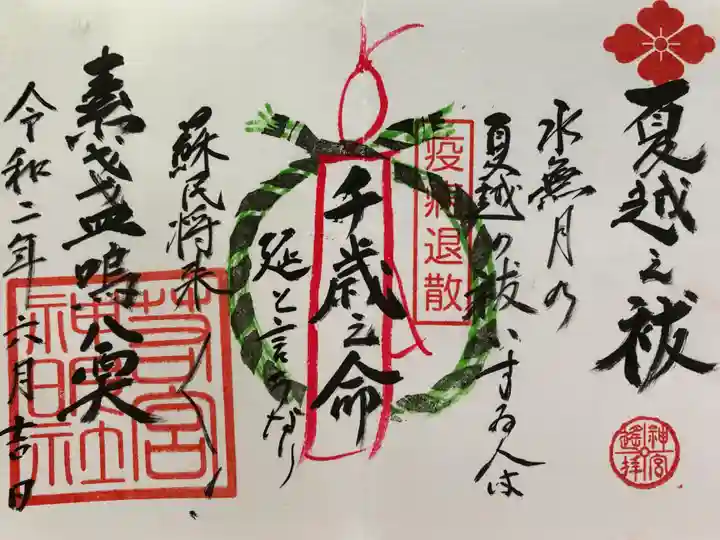 夏越之祓
神宮
遙拝
水無月の
夏越の祓いする人は
疫病退散
千歳之命
延と言うなり
蘇民将来
素盞嗚尊
令和二年六月吉日